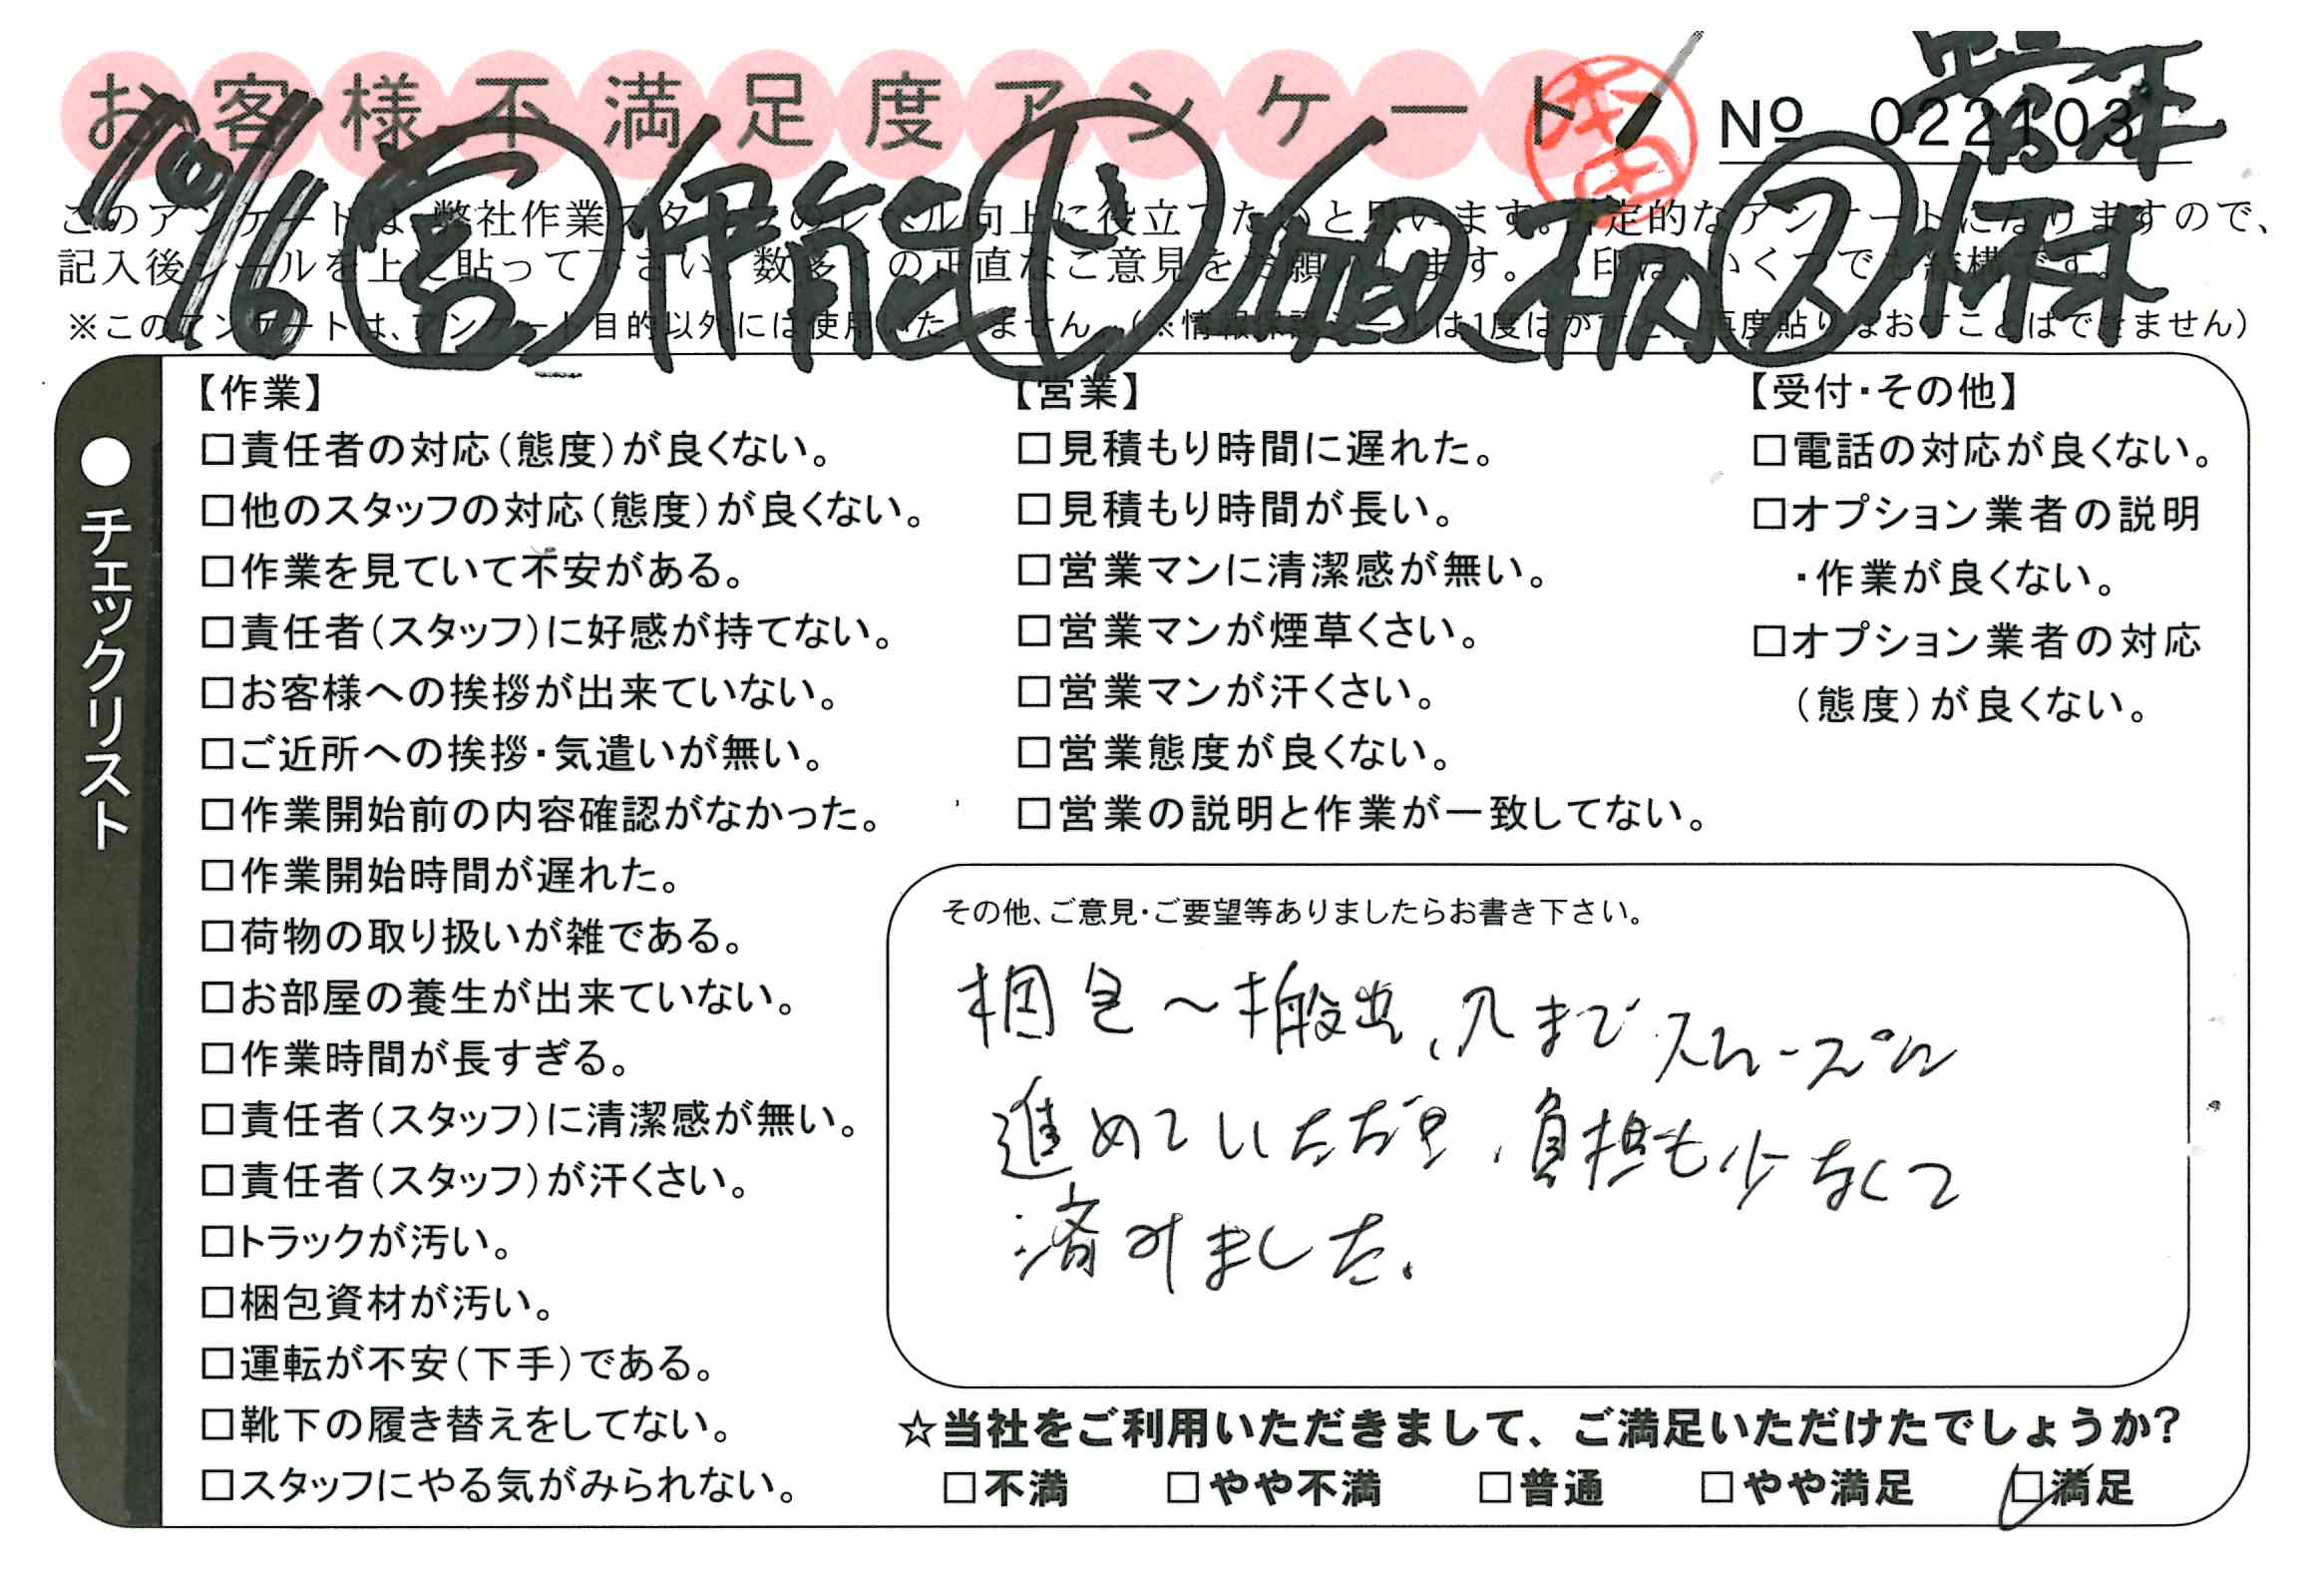 お客様不満足度アンケート
本田
Nº 022103
10/6 宮 伊能 ト 畑 柄 ス 林
このアンケートは、弊社作業スタッフのレベル向上に役立てたいと思います。否定的なアンケートになりますので、
記入後シールを上に貼って下さい。数多くの正直なご意見をお願いします。レ印は、いくつでも結構です。
※このアンケートは、アンケート目的以外には使用いたしません。(※情報保護シールは1度はがすと、再度貼りなおすことはできません)
●チェックリスト
【作業】
□責任者の対応(態度)が良くない。
□他のスタッフの対応(態度)が良くない。
□作業を見ていて不安がある。
□責任者(スタッフ)に好感が持てない。
□お客様への挨拶が出来ていない。
□ご近所への挨拶・気遣いが無い。
□作業開始前の内容確認がなかった。
□作業開始時間が遅れた。
□荷物の取り扱いが雑である。
□お部屋の養生が出来ていない。
□作業時間が長すぎる。
□責任者(スタッフ)に清潔感が無い。
□責任者(スタッフ)が汗くさい。
□トラックが汚い。
□梱包資材が汚い。
□運転が不安(下手)である。
□靴下の履き替えをしてない。
□スタッフにやる気がみられない。
【営業】
□見積もり時間に遅れた。
□見積もり時間が長い。
□営業マンに清潔感が無い。
□営業マンが煙草くさい。
□営業マンが汗くさい。
□営業態度が良くない。
□営業の説明と作業が一致してない。
【受付・その他】
□電話の対応が良くない。
□オプション業者の説明
・作業が良くない。
□オプション業者の対応
(態度)が良くない。
その他、ご意見・ご要望等ありましたらお書き下さい。
梱包～搬出、入までスムーズに
進めていただき、負担も少なくて
済みました。
☆当社をご利用いただきまして、ご満足いただけたでしょうか?
□不満 □やや不満 □普通 □やや満足 □満足